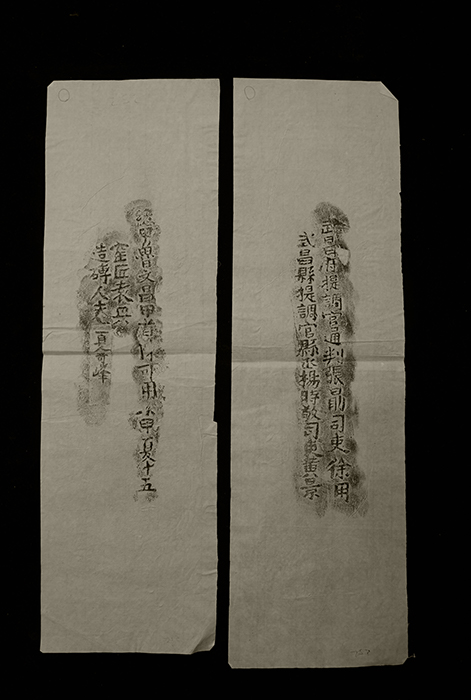 武昌府提調官通判張勗司吏徐用
武昌縣提調官縣丞楊時敬司吏黃景
總甲曾文昌甲首可用小甲夏十五
窑匠朱丑
造磚人夫夏命峰